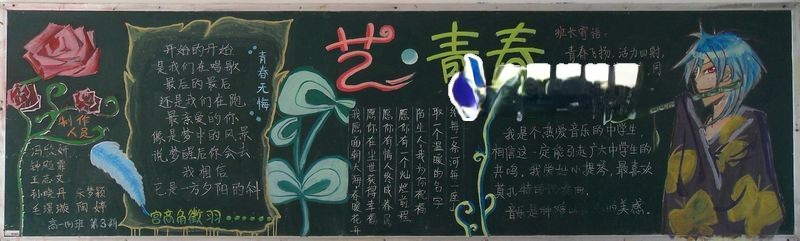 制作
人员
冯欣妍
钟赵霏
王志文
孙晓丹 朱梦颖
王滢漩 陶婷
高一(1)班 第3期
开始的开始
是我们在唱歌
最后的最后
还是我们在跑
最亲爱的你
像是梦中的风景
说梦醒后你会去
我相信
它是一方夕阳的斜
青春无悔
宫商角徵羽
艺·青春
给每一条河每一座山
取一个温暖的名字
陌生人，我为你祝福
愿你有一个灿烂前程
愿你有情人终成眷属
愿你在尘世获得幸福
我愿面朝大海，春暖花开
班长寄语：
青春飞扬，活力四射，
同
我是个热爱音乐的中学生
相信这一定能引起广大中学生的
共鸣。我学过小提琴，最喜欢
莫扎特的
音乐是种难以 的美感。